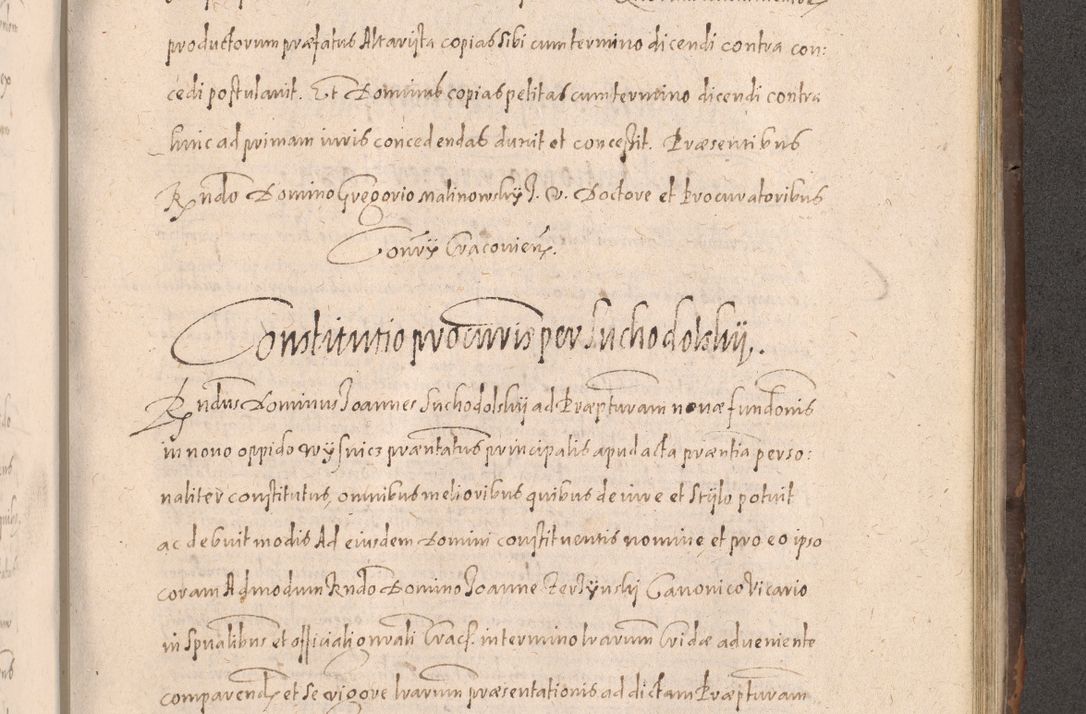 productorum præfatus Altarista copias sibi cum termino dicendi contra con:
cedi postulavit. Et Dominus copias petitas cum termino dicendi contra
hinc ad primam iuris concedendas duxit et concessit. Præsentibus
Rndo Domino Gregorio Malinowskÿ J. V. Doctore et Procuratoribus
Conrÿ Cracovien.
Constitutio procuris per Suchodolskÿ.
Rndus Dominus Joannes Suchodolskÿ ad Præpturam novæ fundonis
in novo oppido Wÿsnicz præntatus principalis apud acta præntia perso:
naliter constitutus, omnibus melioribus quibus de iure et stÿlo potuit
ac debuit modis Ad eiusdem Domini constituentis nomine et pro eo ipso
coram Admodum Rndo Domino Joanne Zerzÿnskj Canonico Vicario
in Spualibus et officiali gnrali Crac. in termino lrarum Cridæ adveniente
comparend et se vigore lrarum præsentationis ad dictam Præpturam